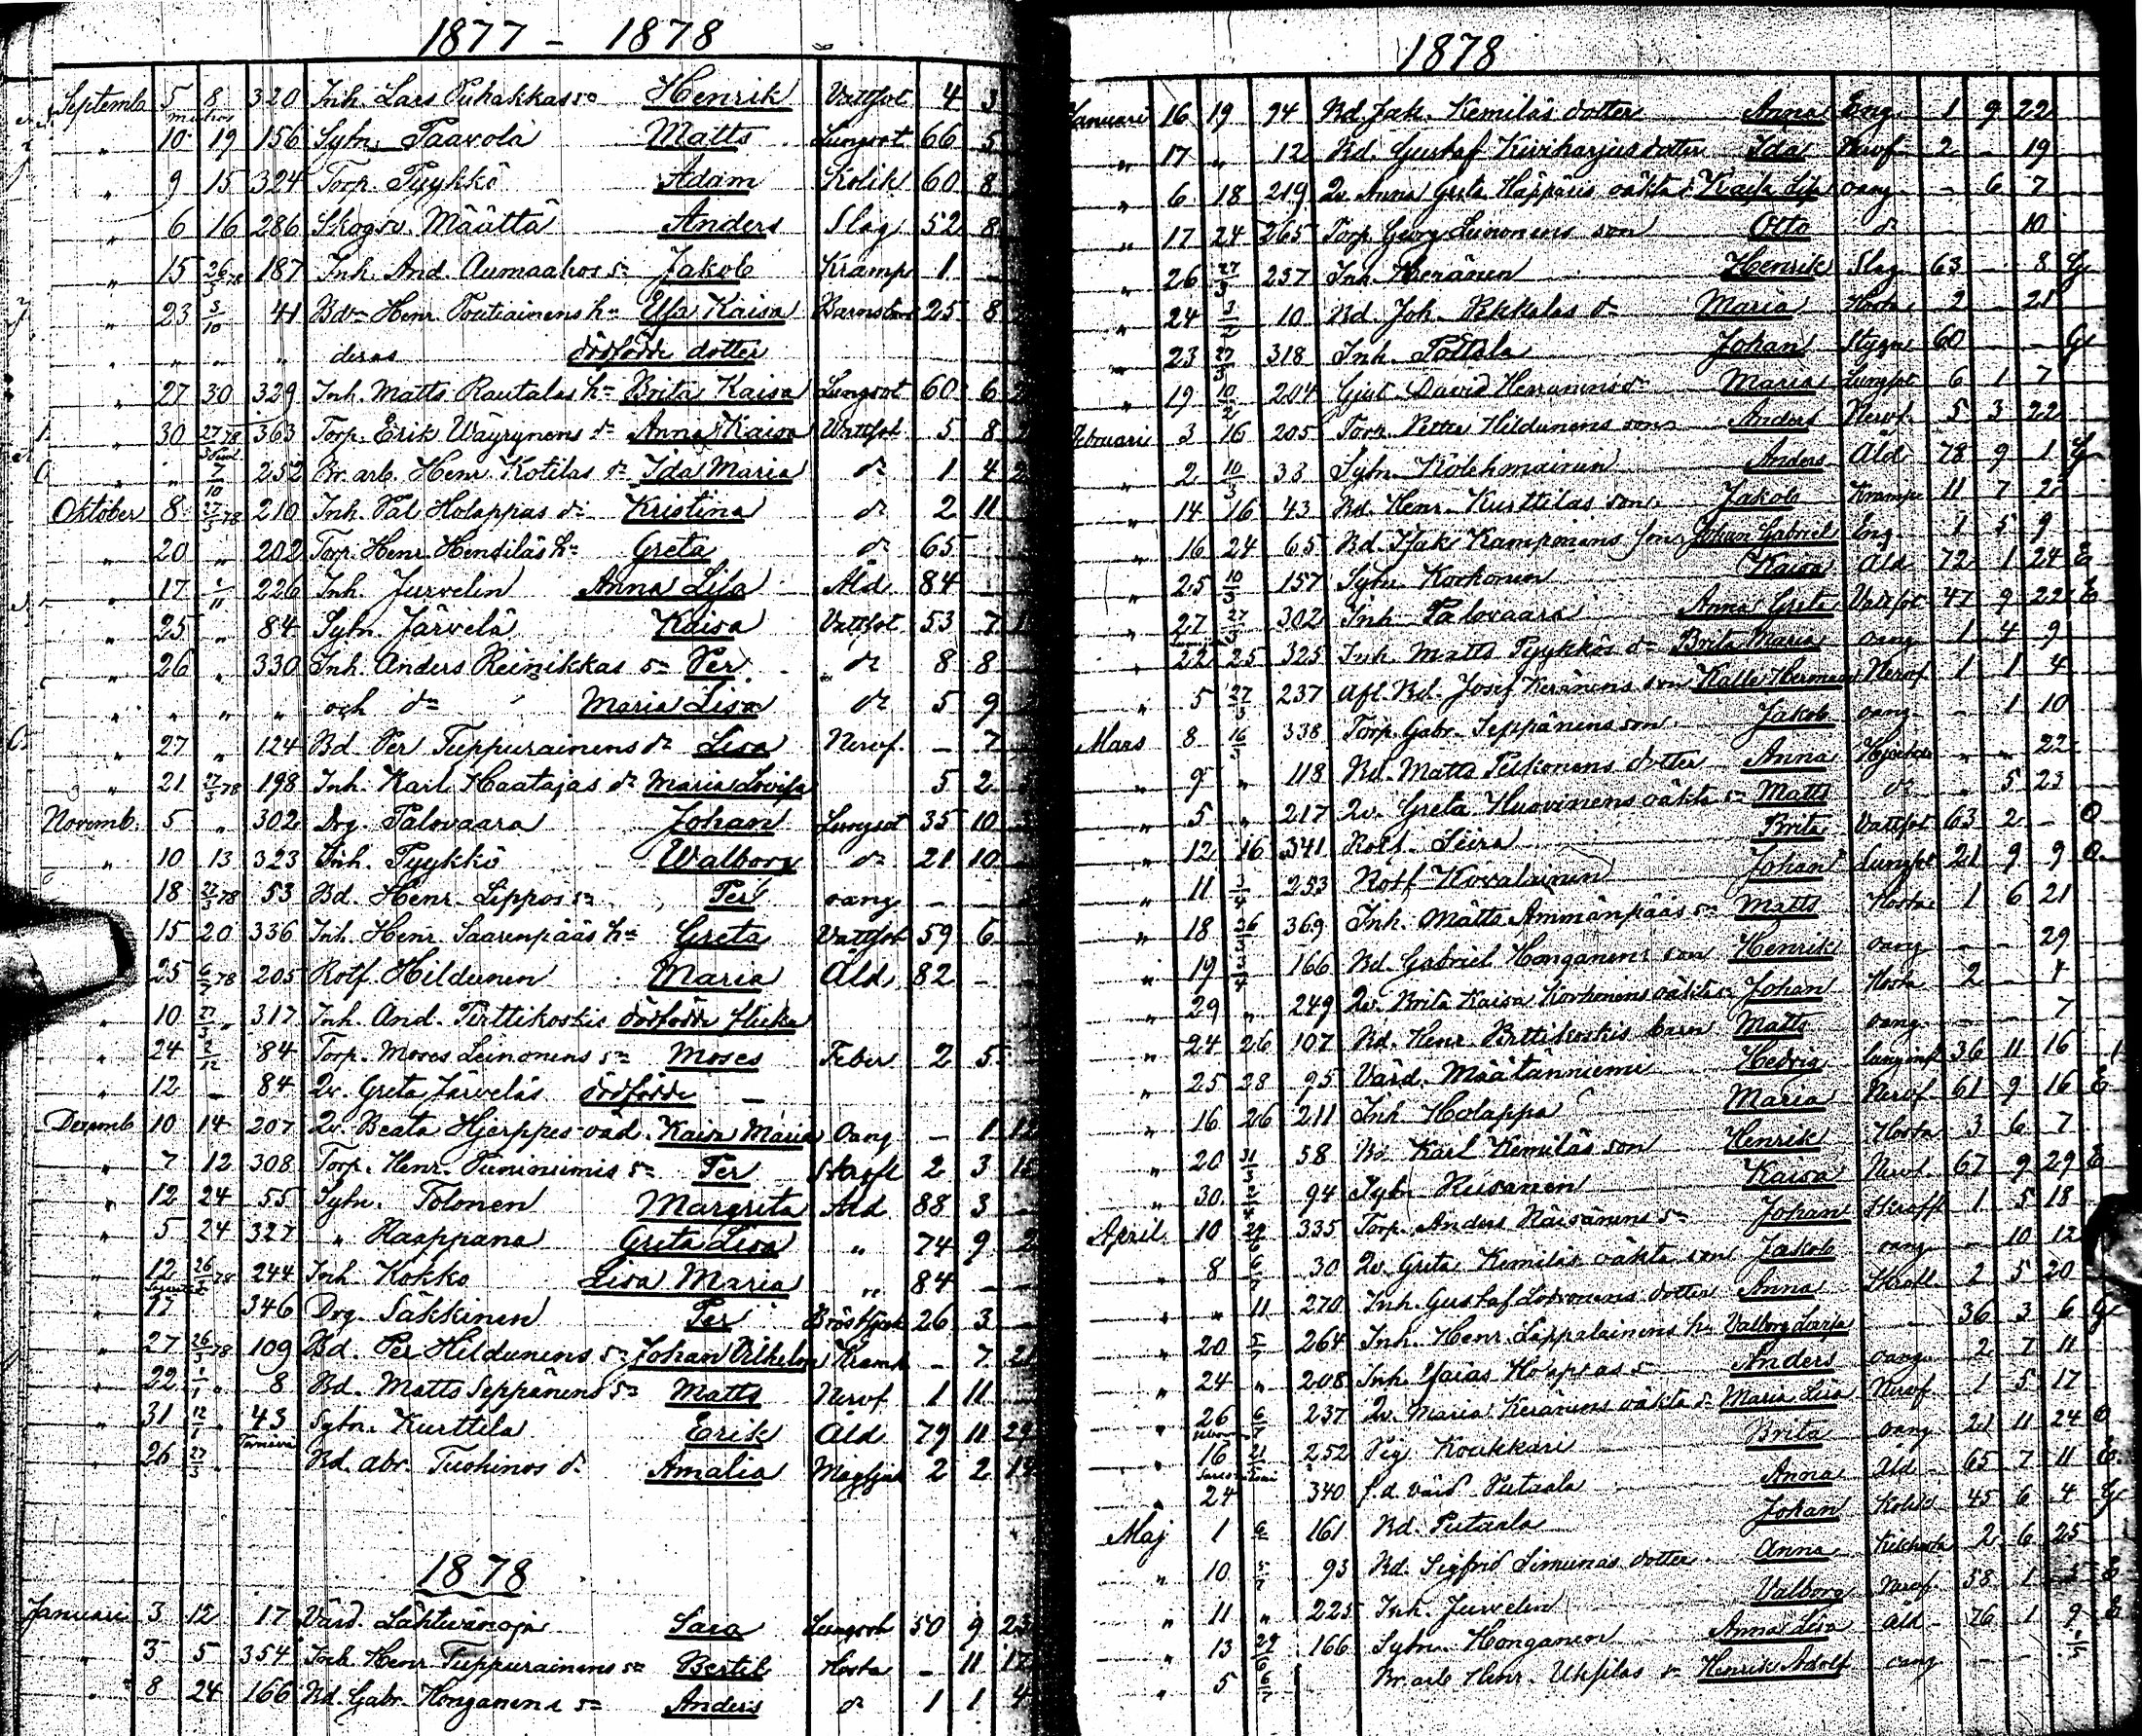 1877 - 1878
Septemb 5 8 320 Inh. Lars Puhakkas sn Henrik Vattsot 4 3
" 10 19 156 Sytn. Paavola Matts Lungsot 66 5
" 9 15 324 Torp. Pyykkö Adam Kolik 60 8
" 6 16 286 Skogsv. Määttä Anders Slag 52 8
" 15 26/3 78 187 Inh. And. Aumaahos sn Jakob Kramp 1 -
" 23 3/10 41 Bdn Henr. Poutiainens hu Elsa Kaisa Barnsbörd 25 8
" " " " deras dödfödde dotter
" 27 30 329 Inh. Matts Rautalas hu Brita Kaisa Lungsot 60 6
" 30 27/3 78 363 Torp. Erik Wäyrynens dr Anna Kaisa Vattsot 5 8
" " 7/10 252 Br. arb. Henr. Kotilas dr Ida Maria do 1 4
Oktober 8 27/3 78 210 Inh. Pål Holappas dr Kristina do 2 11
" 20 " 202 Torp. Henr. Hensiläs hu Greta do 65
" 17 1/11 226 Inh. Jurvelin Anna Lisa Åld 84
" 25 " 84 Sytn. Järvelä Kaisa Vattsot 53 7
" 26 " 330 Inh. Anders Reinikkas sn Per do 8 8
" " " " och dr Maria Lisa do 5 9
" 27 " 124 Bd. Per Tuppurainens dr Lisa Nervf. - 7
" 21 27/3 78 198 Inh. Karl Haatajas dr Maria Lovisa 5 2
Novemb. 5 " 302 Drg. Palovaara Johan Lungsot 35 10
" 10 13 323 Inh. Pyykkö Walborg do 21 10
18 27/3 78 53 Bd. Henr. Lippos sn Per oang - -
15 20 336 Inh. Henr. Saarenpääs hu Greta Vattsot 59 6
25 6/7 78 205 Rotf. Hildunen Maria Åld 82 -
" 10 27/3 " 317 Inh. And. Perttikoskis dödfödde flicka
" 24 2/12 84 Torp. Moses Leinonens sn Moses Feber 2 5
" 12 - 84 Qv. Greta Järveläs dödfödde -
Decemb 10 14 207 Qv. Beata Hjerppes oäd. Kaisa Maria Oang - 1
" 7 12 308 Torp. Henr. sn Per Skrofl 2 3
" 12 24 55 Sytn. Tolonen Margreta Åld 88 3 -
" 5 24 327 " Haappana Greta Lisa " 74 9
" 12 26/3 78 244 Inh. Kokko Lisa Maria " 84 - -
" 17 346 Drg. Säkkinen Per Bröstsjuk 26 3 -
" 27 26/3 78 109 Bd. Per Hildunens sn Johan Vilhelm Kramp - 7 21
" 22 1/1 " 8 Bd. Matts Seppänens sn Matts Nervf 1 11
" 31 12/1 43 Sytn. Kurttila Erik Åld 79 11 22
" 26 27/3 " Bd. abr. Tuohinos dr Amalia Magsjuk 2 2
1878
Januari 3 12 17 Värd. Lähtevänoja Sara Lungsot 50 9 23
" 3 5 354 Inh. Henr. Tuppurainens sn Bertil Hosta - 11 12
" 8 24 166 Bd. Gabr. Honganens sn Anders do 1 1 4
1878
Januari 16 19 94 Bd. Jak. Kemiläs dotter Anna Eng. 1 9 22
" 17 " 12 Bd. Gustaf Kiviharjus dotter Ida Nervf 2 - 19
" 6 18 219 Qv. Anna Greta Häppäris oäkta d. Kaisa Lisa oang - 6 7
" 17 24 265 Torp. Georg Leinonens son Otto do 10
" 26 27/3 237 Inh. Keränen Henrik Slag 63 - 8 G
" 24 3/2 10 Bd. Joh. Pekkalas dr Maria Hosta 2 - 21
" 23 27/3 318 Inh. Pottala Johan Stygn 60 - - G
" 19 10/2 204 Gjut. David Herranens dr Maria Lungsot 6 1 7
Februari 3 16 205 Torp. Petter Hildunens son Anders Nervf. 5 3 22
" 2 10/3 33 Sytn. Kolehmainen Anders Åld 78 9 1 G
" 14 16 43 Bd. Henr. Kurttilas son Jakob Kramp 11 7 2
" 16 24 65 Bd. Isak Kamponens son Johan Gabriel Eng 1 5 9
" 25 10/3 157 Sytn. Korhonen Kaisa Åld 72 1 24 E
" 27 27/3 302 Inh. Palovaara Anna Greta Vattsot 47 9 22 E
" 22 25 325 Inh. Matts Pyykkös dr Brita Maria oang 1 4 9
" 5 27/3 237 Afl. Bd. Josef Keränens son Kalle Herman Nervf 1 1 4
Mars 8 16/3 338 Torp. Gabr. Seppänens son Jakob oang - 1 10
" 9 " 118 Bd. Matts Piikonens dotter Anna " " 22
" 5 " 217 Qv. Greta Huovinens oäkta sn Matts do " 5 23
" 12 16 341 Rotf. Leira Brita Vattsot 63 2 - O
" 11 3/4 253 Rotf. Kovalainen Johan Lungsot 21 9 9 O
" 18 26/3 369 Inh. Matts Ämmänpääs sn Matts Hosta 1 6 21
" 19 166 Bd. Gabriel Honganens son Henrik oang - - 29
" 29 " 249 Qv. Brita Kaisa Korhonens oäkta sn Johan Hosta 2 - 4
" 24 26 107 Bd. Henr. Perttikoskis barn Matts oang - - 7
" 25 28 95 Värd. Määtänniemi Hedvig Lunginfl 36 11 16
" 16 26 211 Inh. Holappa Maria Nervf 61 9 16 E
" 20 31/3 58 Bd. Karl Kemiläs son Henrik Hosta 3 6 7
" 30 94 Sytn. Reisanen Kaisa Nervf. 67 9 29 E
April 10 335 Torp. Anders Räisänens sn Johan Skrofl 1 5 18
" 8 30 Qv. Greta Kemiläs oäkta son Jakob oang - 10 12
" " 11 270 Inh. Gustaf dotter Anna Skrofl. 2 5 20
" 20 5/7 264 Inh. Henr. Leppalainens hu Valborg Lovisa 36 3 6 G
" 24 " 208 Inh. Esaias Holappas sn Anders oang 2 7 11
" 26 6/7 237 Qv. Maria Keränens oäkta d Maria Lisa Nervf 1 5 17
" 16 252 Pig. Koukkari Brita oang 21 11 24 O
" 24 340 f.d. värd Putaala Anna Åld 65 7 11 E
Maj 1 161 Bd. Putaala Johan Kolik 45 6 4 G
" 10 5/7 93 Bd. Sigfrid Simunas dotter Anna Kikhosta 2 6 25
" 11 " 225 Inh. Jurvelin Valborg Nervf. 58 1 5 E
" 13 166 Sytn. Honganen Anna Lisa Åld 76 1 9 E
" 5 Br. arb. Henr. sn Henrik Adolf oang - -